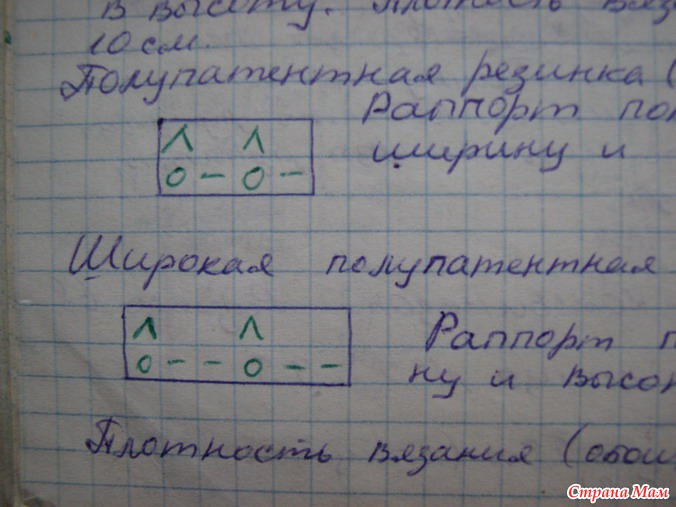 в высоту. Плотность
10 см.
Полупатентная резинка (
Раппорт
ширину и
Λ Λ
о – о –
Широкая полупатентная
Λ Λ
о – – о – –
Раппорт
ну и
Плотность вязания (
Страна Мам